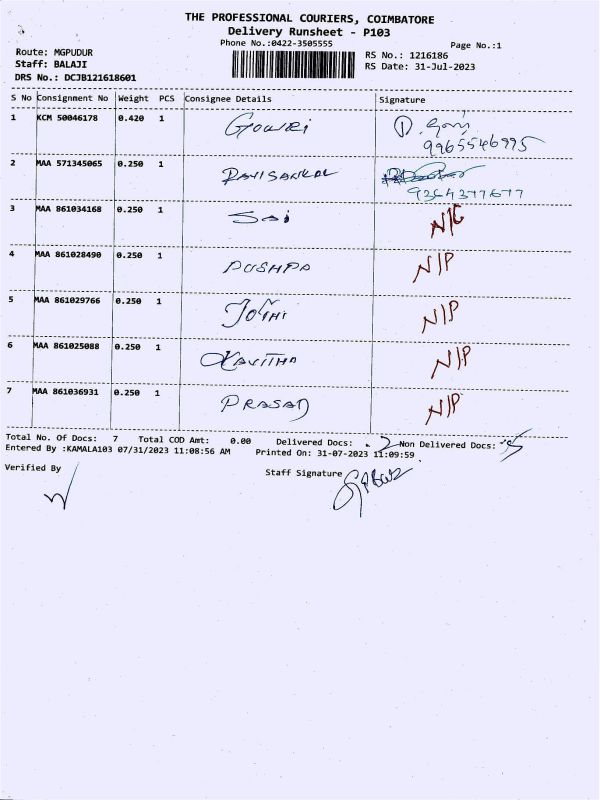 THE PROFESSIONAL COURIERS, COIMBATORE
Delivery Runsheet - P103
Phone No.:0422-3505555
Page No.:1
Route: MGPUDUR
RS No.: 1216186
Staff: BALAJI
RS Date: 31-Jul-2023
DRS No.: DCJB121618601
S No Consignment No Weight PCS Consignee Details Signature
1 KCM 50046178 0.420 1 Gowri ①
9965546995
2 MAA 571345065 0.250 1 RAVISANKAR
9364377677
3 MAA 861034168 0.250 1 Sai
4 MAA 861028490 0.250 1 PUSHPA N/P
5 MAA 861029766 0.250 1 JOTHI N/P
6 MAA 861025088 0.250 1 KAVITHA N/P
7 MAA 861036931 0.250 1 PRASAD N/P
Total No. Of Docs: 7 Total COD Amt: 0.00 Delivered Docs: 2 Non Delivered Docs: 5
Entered By :KAMALA103 07/31/2023 11:08:56 AM Printed On: 31-07-2023 11:09:59
Verified By Staff Signature